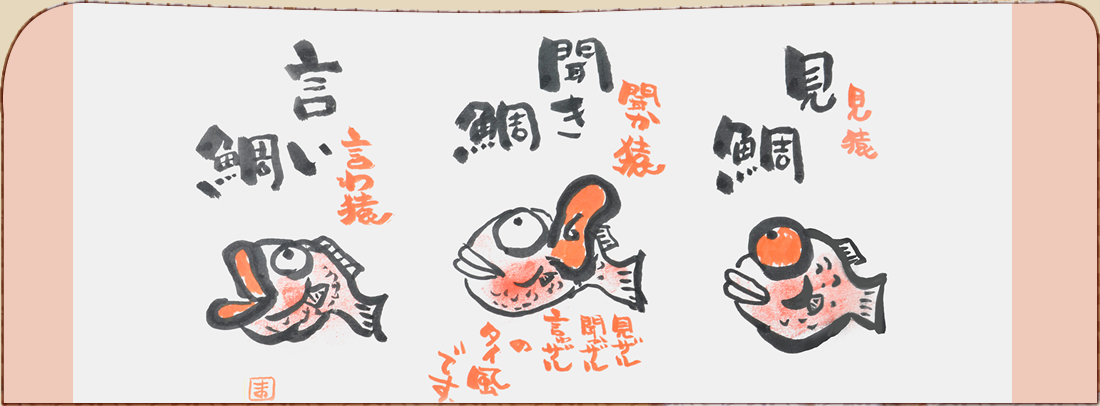 見
鯛
見猿
聞き
鯛
聞か猿
言い
鯛
言わ猿
見ザル
聞かザル
言わザル
の
タイ風
です